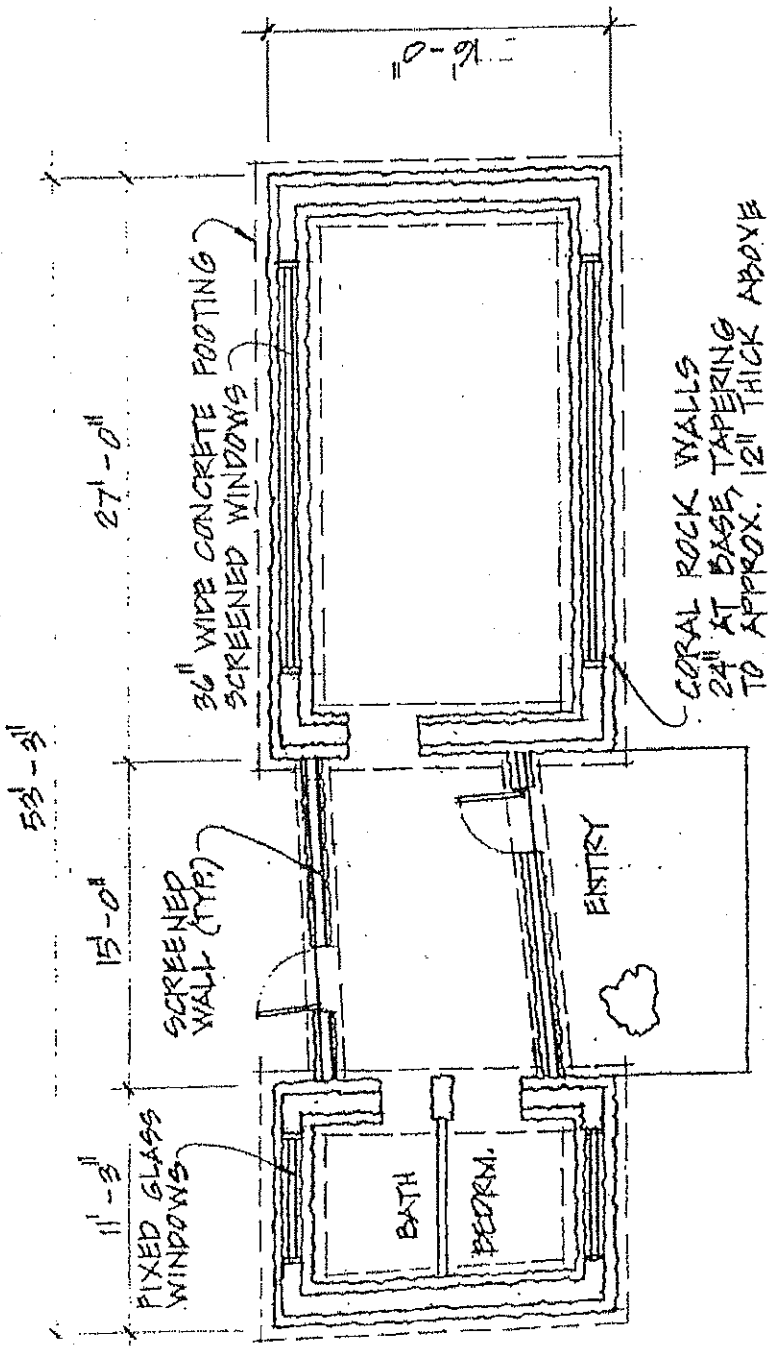 53'-3"
11'-3"
15'-0"
27'-0"
16'-0"
FIXED GLASS
WINDOWS
SCREENED
WALL (TYP.)
36" WIDE CONCRETE FOOTING
SCREENED WINDOWS
BATH
BEDRM.
ENTRY
CORAL ROCK WALLS
24" AT BASE, TAPERING
TO APPROX. 12" THICK ABOVE